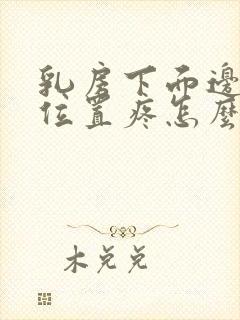 乳房下面邊
位置疼怎麼
木兌兌